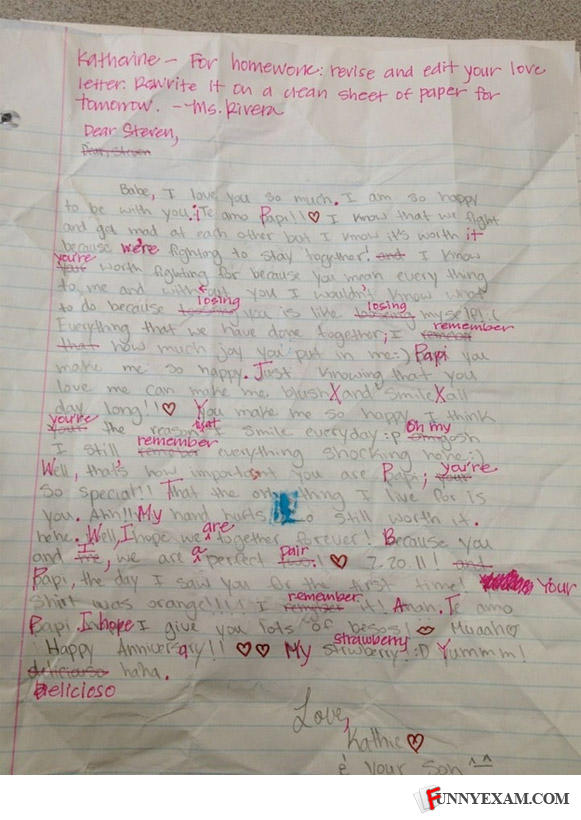 Katherine – For homework: revise and edit your love
letter. Rewrite it on a clean sheet of paper for
tomorrow. – Ms. Rivera
Dear Steven,
Dear, Steven
Babe, I love you so much. I am so happy
to be with you. ¡Te amo Papi!! ♡ I know that we fight
and get mad at each other but I know it's worth it
because we're fighting to stay together! and I know
you're
your worth fighting for because you mean every thing
to me and without you I wouldn't know what
losing losing
to do because loosing you is like loosing myself! :(
Everything that we have done together; I
remember
that how much joy you put in me :) Papi you
make me so happy. Just knowing that you
love me can make me blush X and smile X all
day long!! ♡ You make me so happy I think
you're that oh my
your the reason I smile everyday :p Omgosh
remember
I still everything shocking hehe :)
Well, that's how important you are Papi; you're
so special!! That the only thing I live for is
you. Ahh!! My hand hurts still worth it.
are
hehe. Well, I hope we together forever! Because you
I a pair
and me, we are perfect ! ♡ 7.20.11! and
Papi, the day I saw you for the first time! Your
remember
shirt was orange!!!! I it! Amah. Te amo
Papi I hope I give you lots of besos! Muaah
strawberry
¡Happy Anniversary!! ♡♡ My strwberry! :D Yummm!
delicioso haha.
Delicioso
Love,
Kathie ♡
è your son ^^
FUNNYEXAM.COM